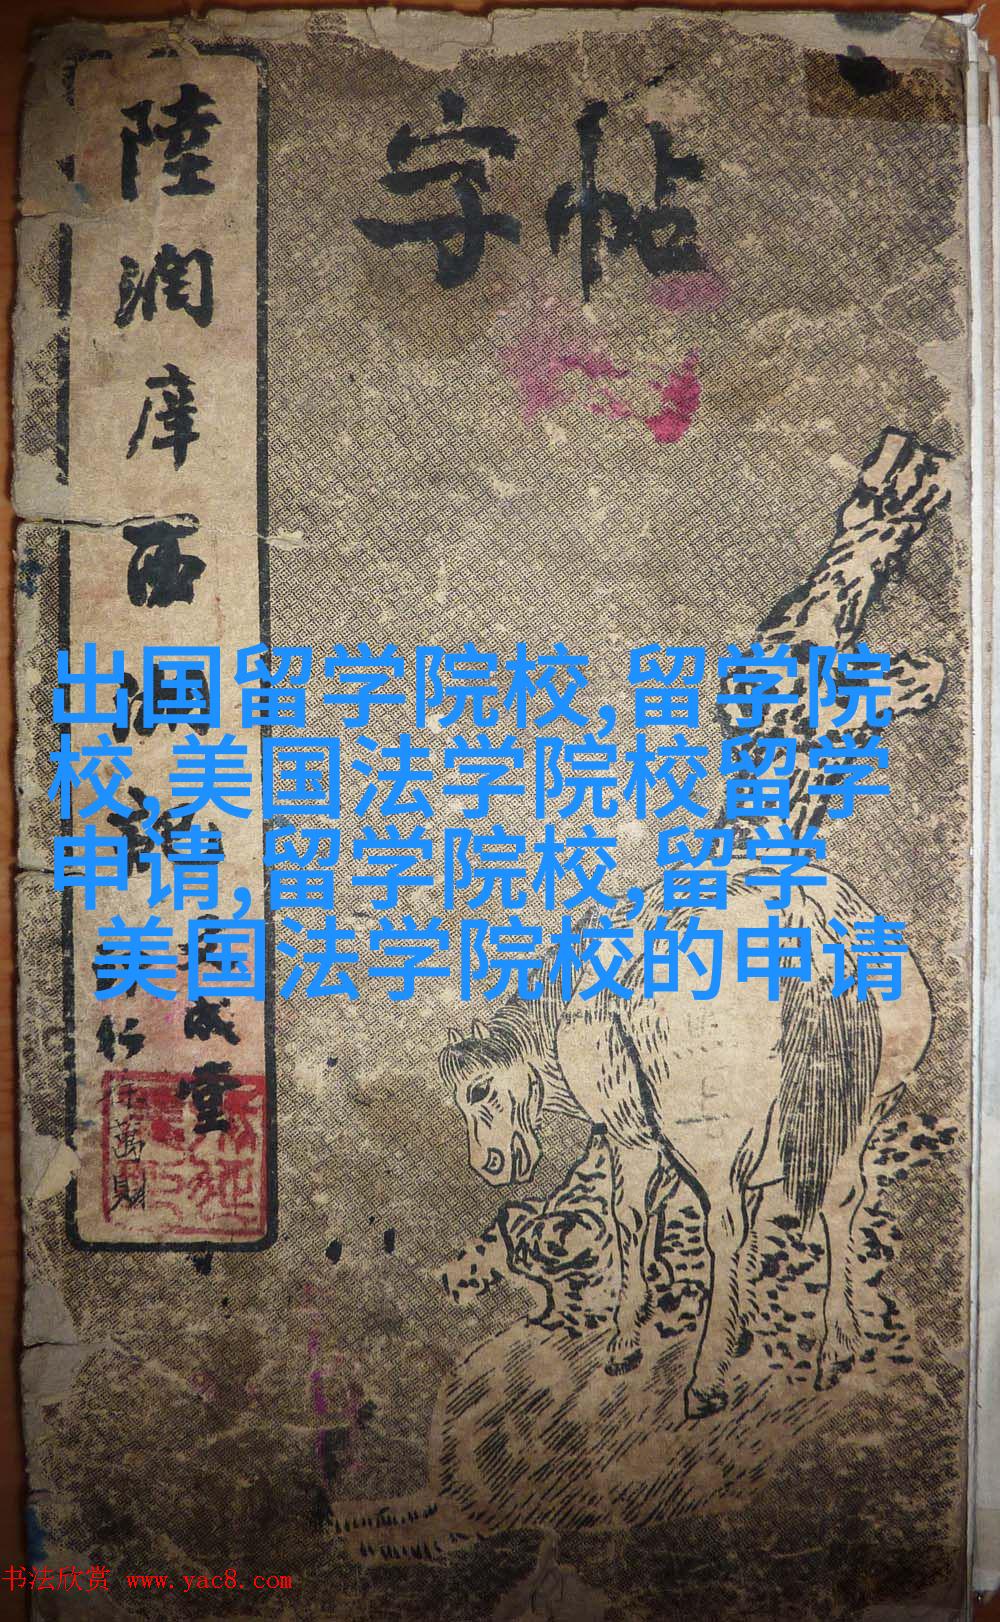 字帖
陸潤庠西湖
成堂
徐萬財
出国留学院校,留学院
校,美国法学院校留学
申请,留学院校,留学
美国法学院校的申请
书法欣赏 www.yac8.com